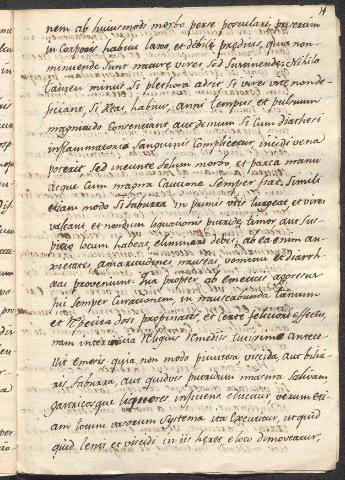 nem ab huiusmodi morbo per se postulari, præsertim
in corporis habitu laxo, et debili prædiis, quia non
minuendæ sunt naturæ vires, sed sustinendæ: Nihilo
tamen minus si plethora adsit, si vires vitæ non de-
ficiant, si ætas, habitus, anni tempus et pulsuum
magnitudo consentiant aut demum si cum diathesi
inflammatoria sanguinis complicetur, incidi vena
poterit sed ineunte solum morbo, et parca manu
atque cum magna cautione semper fiat. Simili
etiam modo si saburra in primis viis turgeat, et vires
valeant et nondum liquationis putridæ timor aut sus-
picio locum habeat, eliminari debet; ab ea enim an-
xietates, amaritudines, nauseæ, vomitus et diarrh
ææ proveniunt. Qua propter ab emeticis aggressus
fui semper curationem, in nauseabunda tantum
et dosi propinatis, et certe feliciori effectu,
nam inter remedia tutissime antecel-
lit emesis, quia non modo pituitosa viscida, aut bilia-
ris saburra, aut quidvis putridum massa salivam
gastricosque liquores inficiens educitur, verum eti-
am totum vasorum systema ita excutitur, ut quid
quid lenti et viscidi in iis hæret e loco dimoveatur,